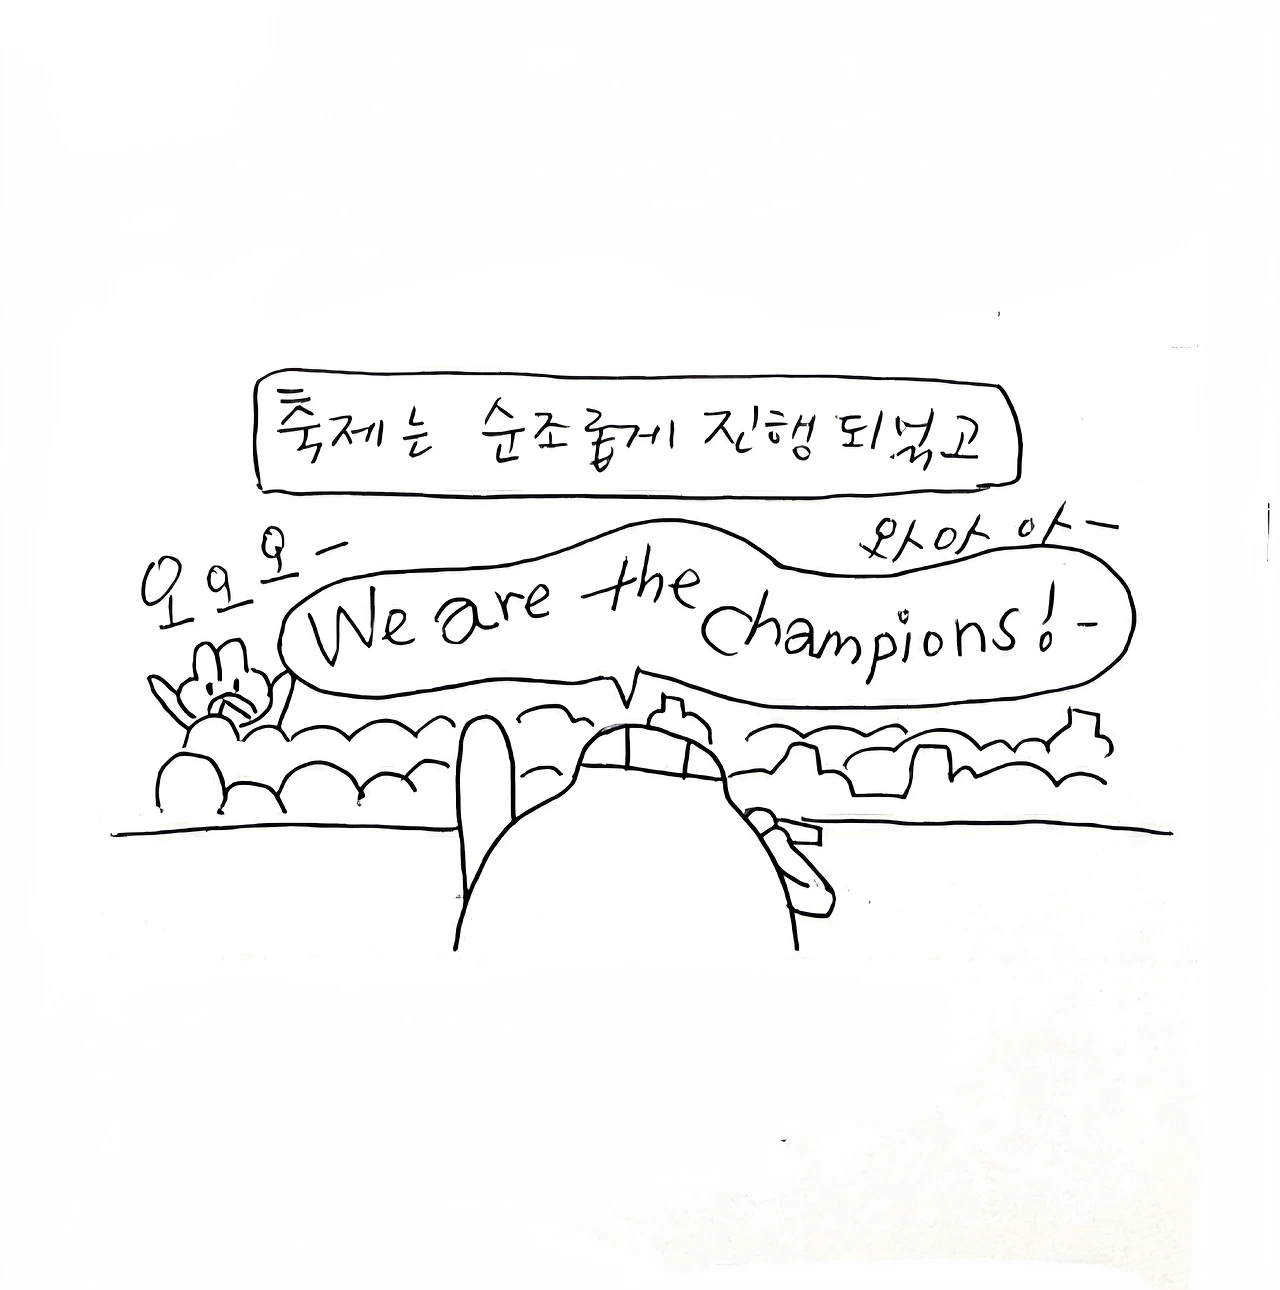 축제는 순조롭게 진행 되었고
오오오-
와아아-
We are the champions!-